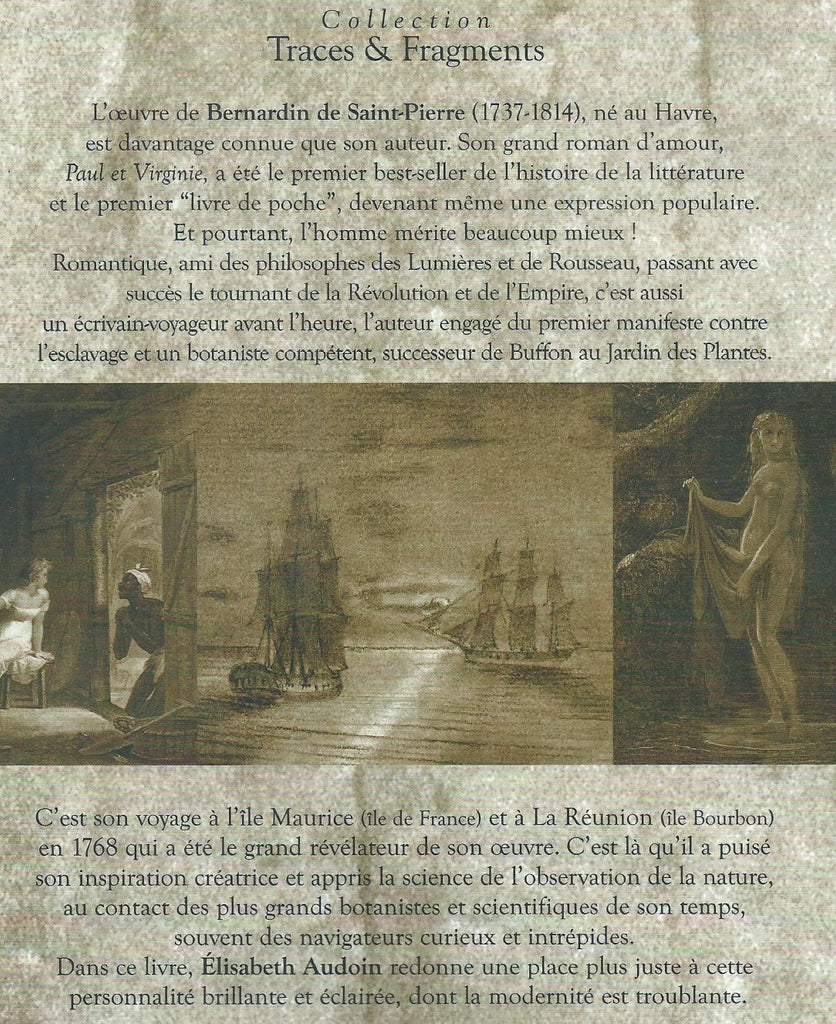 Collection
Traces & Fragments
L'œuvre de Bernardin de Saint-Pierre (1737-1814), né au Havre,
est davantage connue que son auteur. Son grand roman d'amour,
Paul et Virginie, a été le premier best-seller de l'histoire de la littérature
et le premier "livre de poche", devenant même une expression populaire.
Et pourtant, l'homme mérite beaucoup mieux !
Romantique, ami des philosophes des Lumières et de Rousseau, passant avec
succès le tournant de la Révolution et de l'Empire, c'est aussi
un écrivain-voyageur avant l'heure, l'auteur engagé du premier manifeste contre
l'esclavage et un botaniste compétent, successeur de Buffon au Jardin des Plantes.
C'est son voyage à l'île Maurice (île de France) et à La Réunion (île Bourbon)
en 1768 qui a été le grand révélateur de son œuvre. C'est là qu'il a puisé
son inspiration créatrice et appris la science de l'observation de la nature,
au contact des plus grands botanistes et scientifiques de son temps,
souvent des navigateurs curieux et intrépides.
Dans ce livre, Élisabeth Audoin redonne une place plus juste à cette
personnalité brillante et éclairée, dont la modernité est troublante.